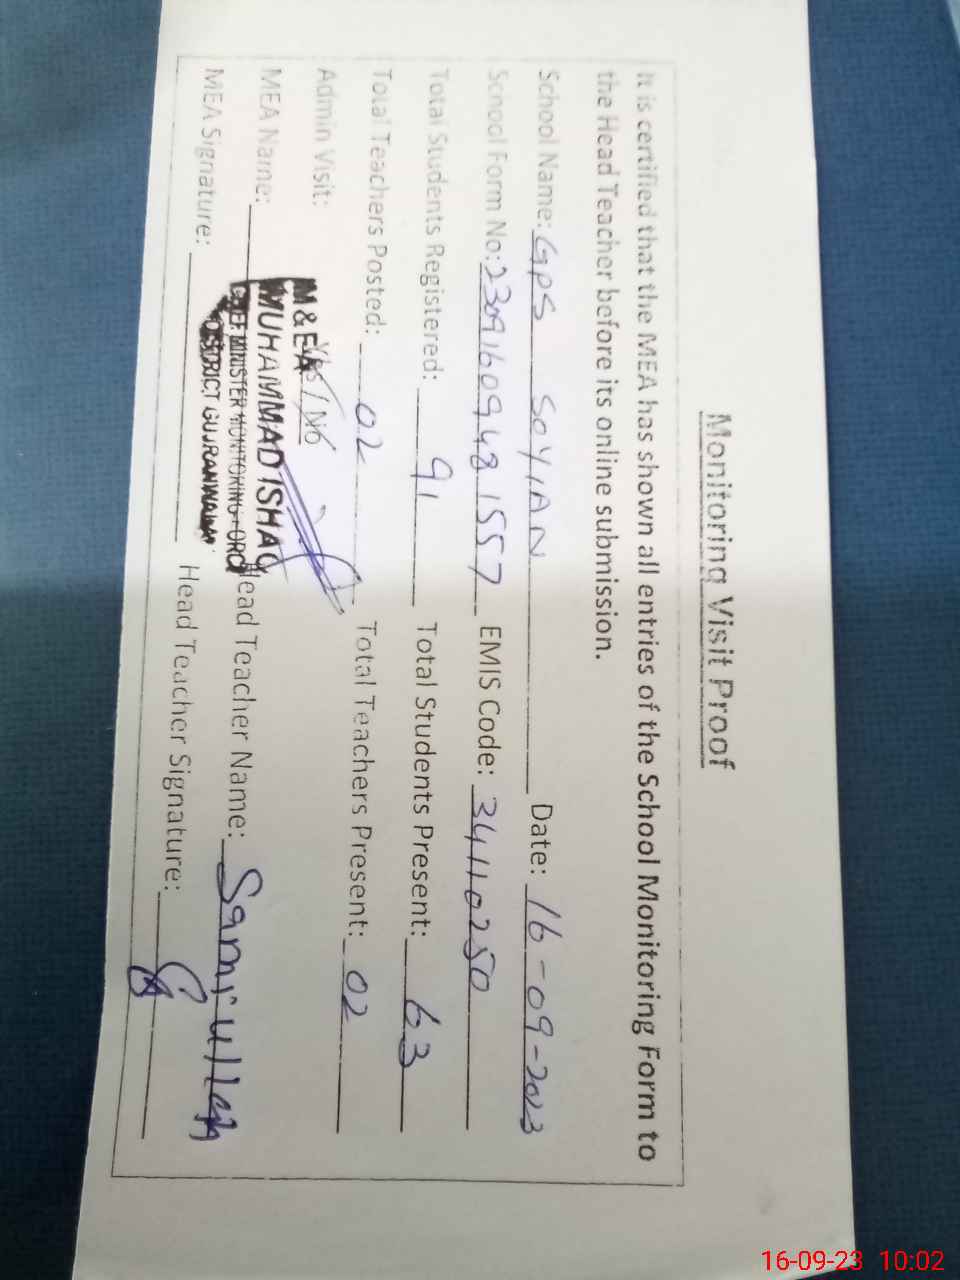 Monitoring Visit Proof
It is certified that the MEA has shown all entries of the School Monitoring Form to
the Head Teacher before its online submission.
School Name: GPS SOYIAN Date: 16-09-2023
School Form No: 230916094948 1557 EMIS Code: 34110250
Total Students Registered: 91 Total Students Present: 63
Total Teachers Posted: 02 Total Teachers Present: 02
Admin Visit: Yes / No
M & EA
MEA Name: MUHAMMAD ISHAQ Head Teacher Name: Samiullah
CHIEF MINISTER MONITORING FORC
MEA Signature: DISTRICT GUJRANWALA Head Teacher Signature:
16-09-23 10:02